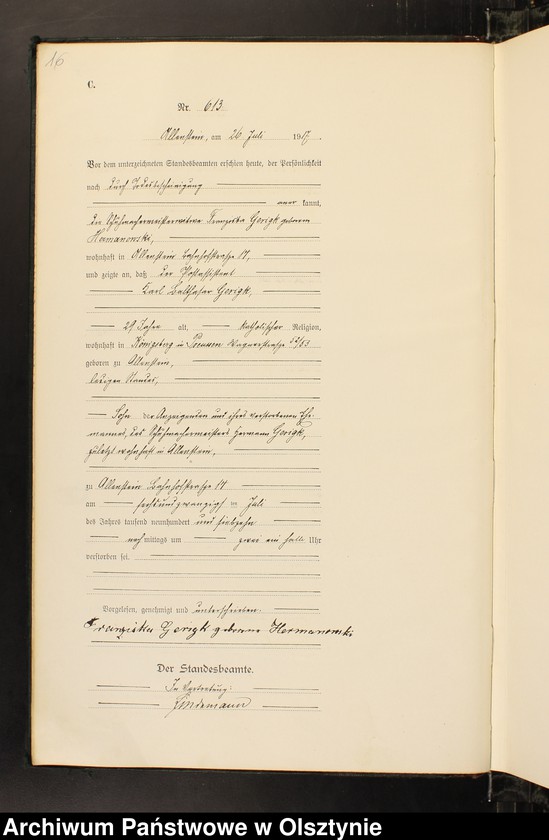 16
C.
Nr. 613
Allenstein, am 26. Juli 1917.
Vor dem unterzeichneten Standesbeamten erschien heute, der Persönlichkeit
nach durch
aner kannt,
die Schuhmachermeisterwitwe Franziska Gerigk geborene
Hermanowski,
wohnhaft in Allenstein Bahnhofstraße 17,
und zeigte an, daß der Postassistent
Karl Balthasar Gerigk,
29 Jahre alt, katholischer Religion,
wohnhaft in Königsberg in Preussen Wagnerstraße 52/53
geboren zu Allenstein,
ledigen Standes,
Sohn der Anzeigenden und ihres verstorbenen Ehe-
mannes, des Schuhmachermeisters Hermann Gerigk,
zuletzt wohnhaft in Allenstein,
zu Allenstein Bahnhofstraße 17
am sechsundzwanzigsten Juli
des Jahres tausend neunhundert und siebzehn
nachmittags um zwei ein halb Uhr
verstorben sei.
Vorgelesen, genehmigt und unterschrieben.
Franziska Gerigk geborene Hermanowski
Der Standesbeamte.
In Vertretung:
Lindemann
Archiwum Państwowe w Olsztynie